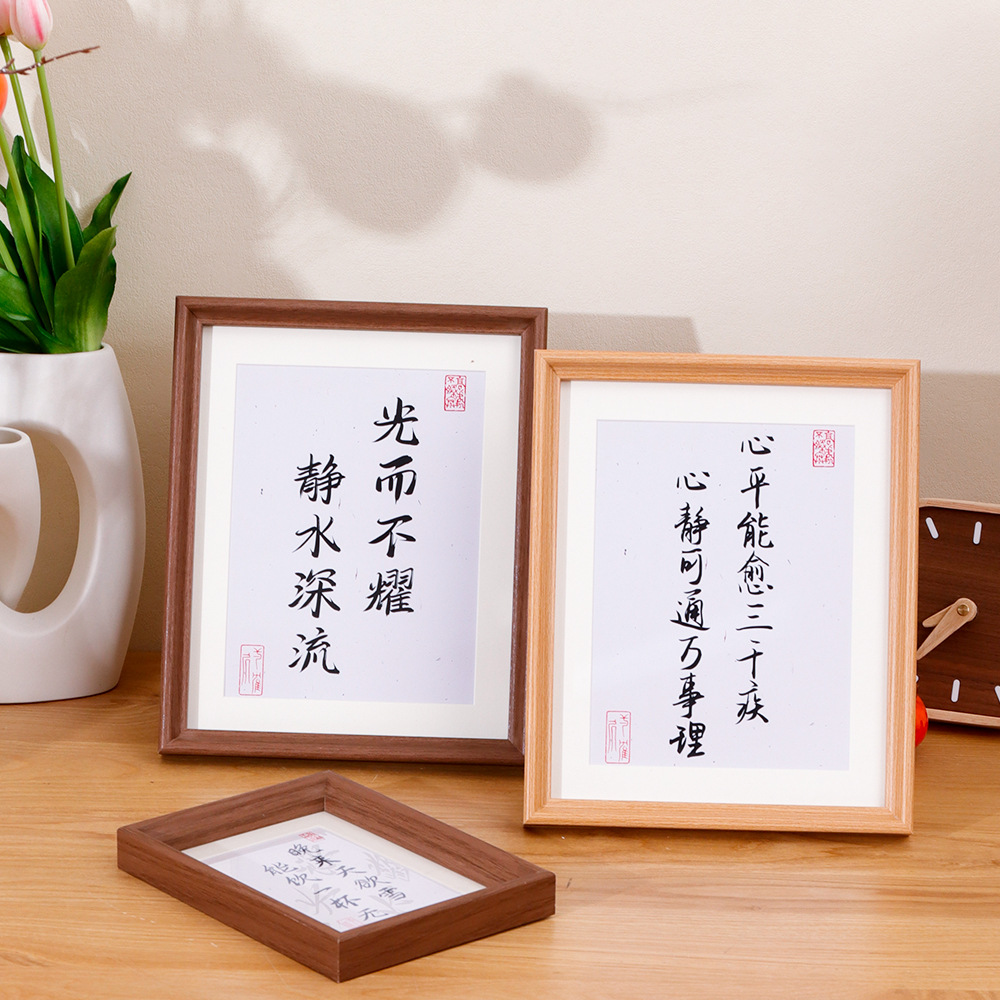 光而不耀
静水深流
心平能愈三千疾
心静可通万事理
晚来天欲雪
能饮一杯无